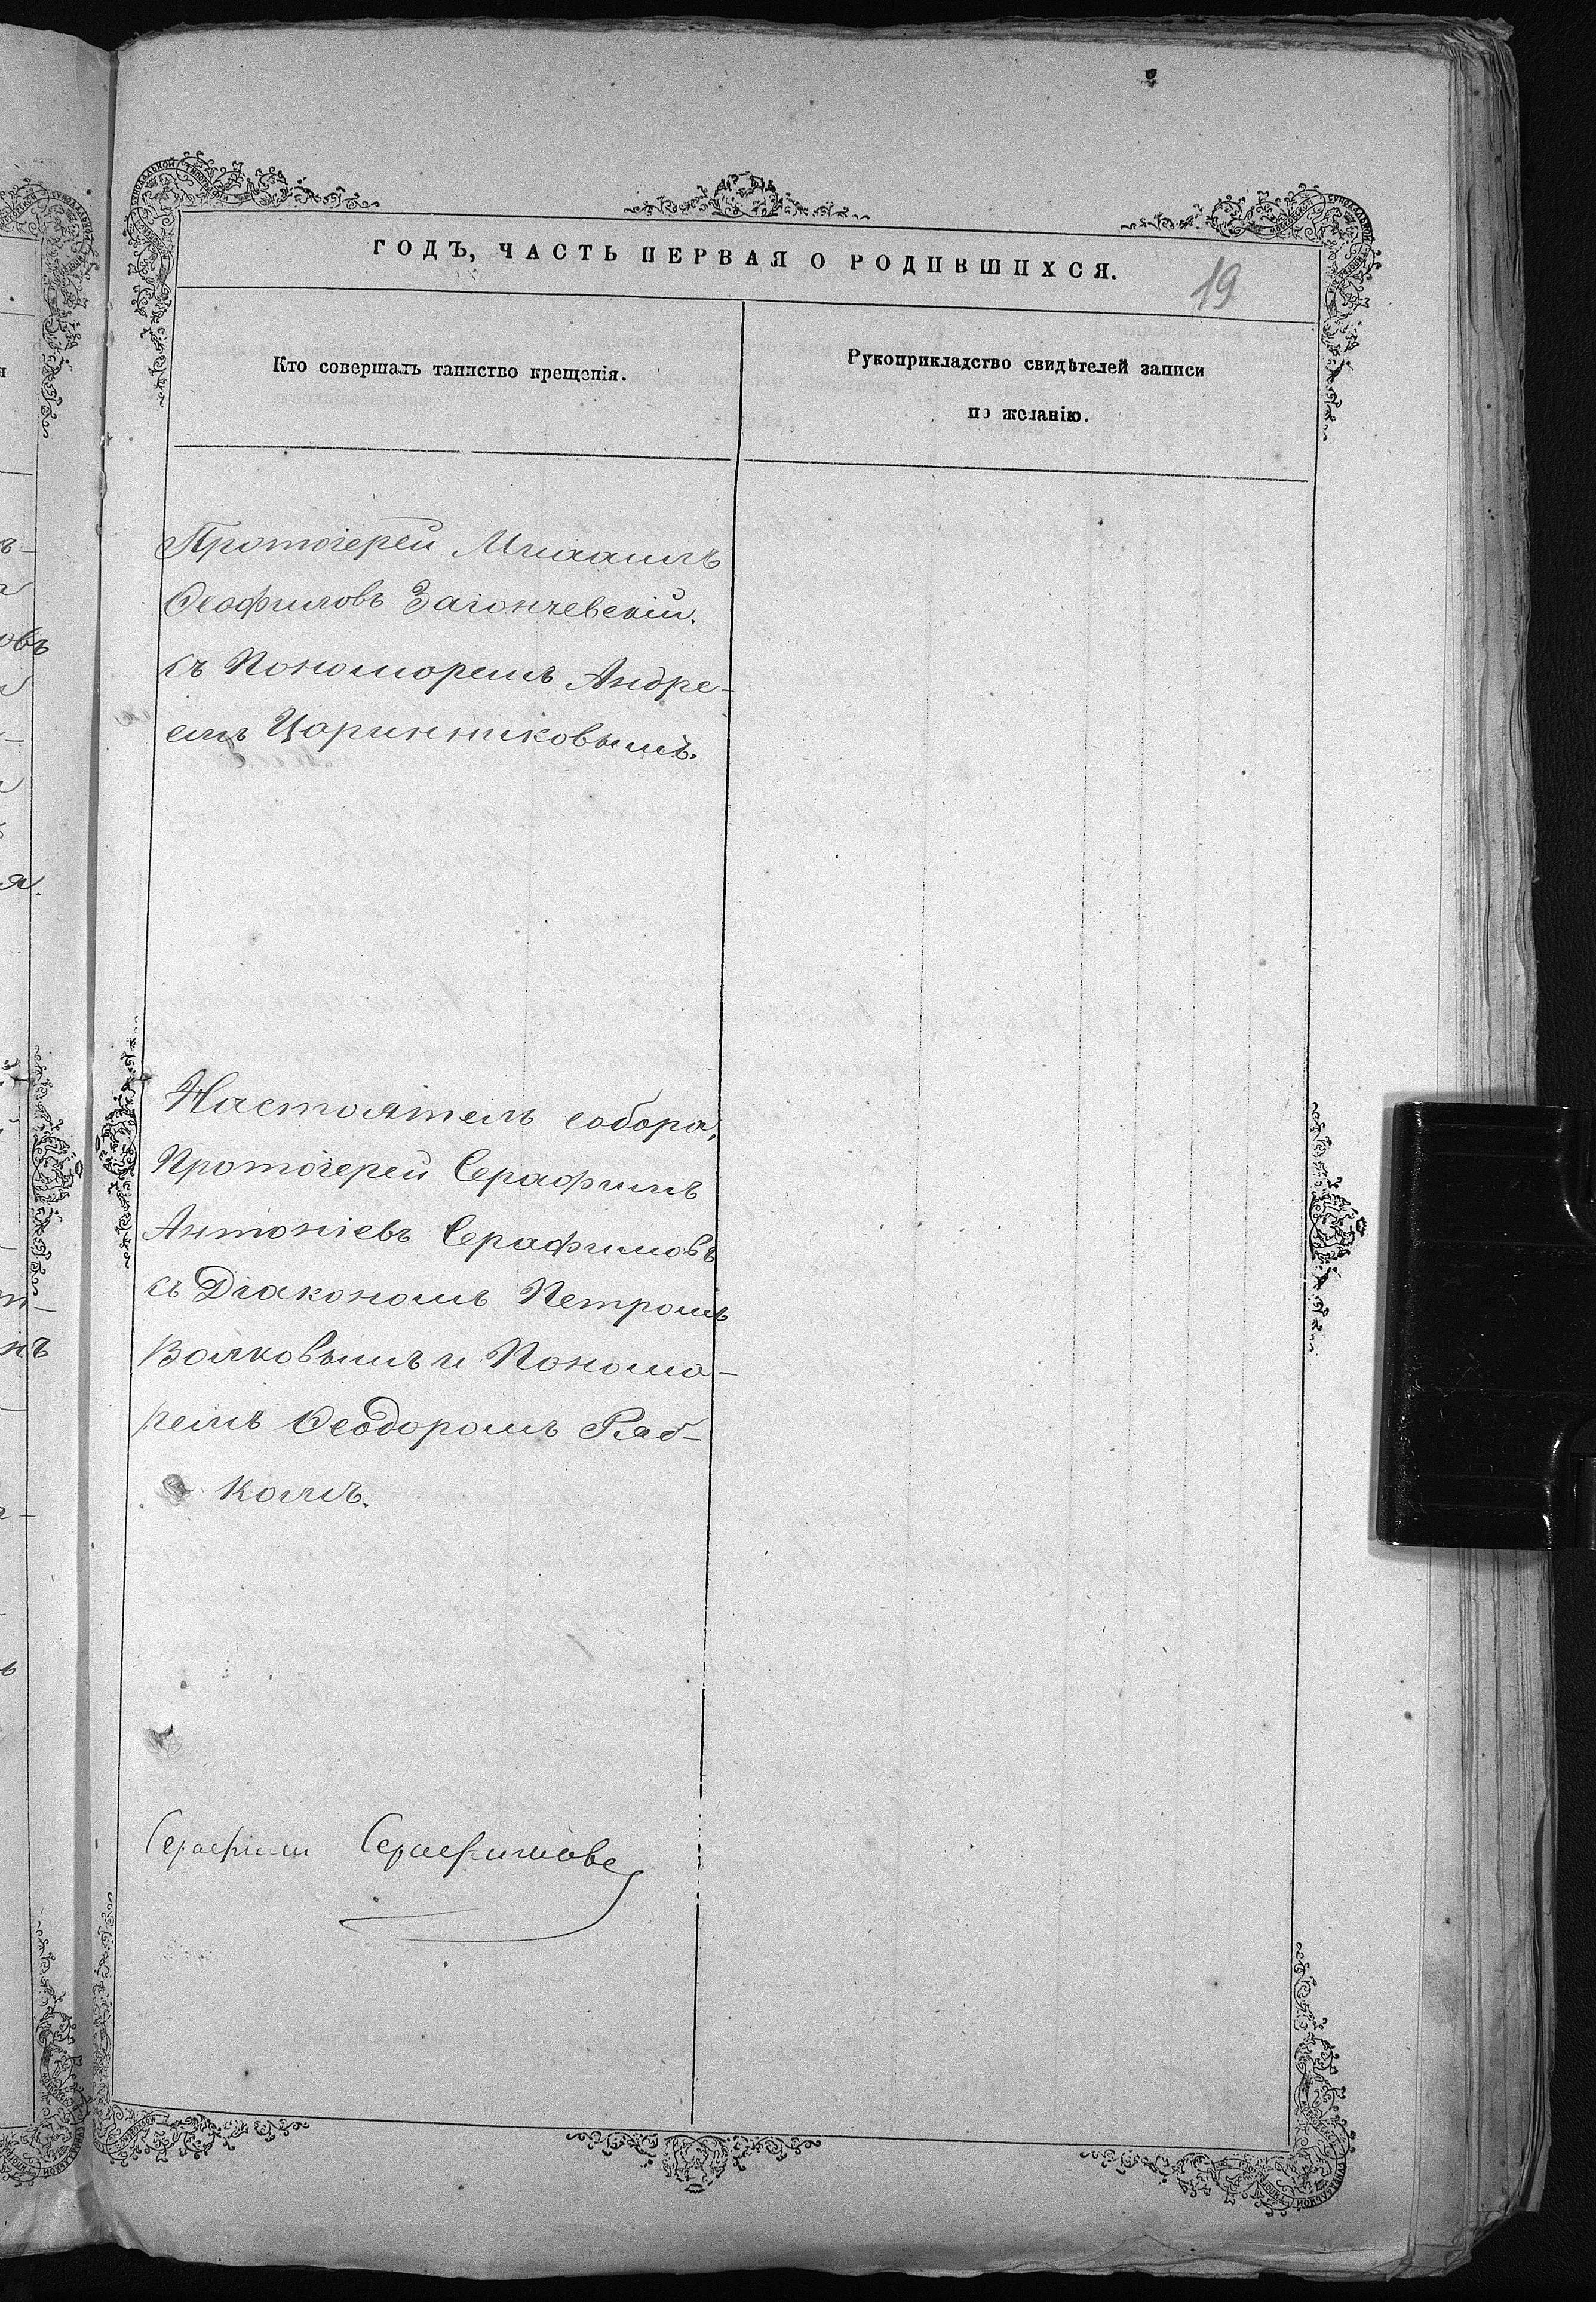 ГОДЪ, ЧАСТЬ ПЕРВАЯ О РОДИВШИХСЯ.
19
Кто совершалъ таинство крещенія.
Рукоприкладство свидѣтелей записи
по желанію.
Протоіерей Михаилъ
Ѳеофиловъ Загончевскій.
съ Пономоремъ Андре-
емъ Царинниковымъ.
Настоятель собора,
Протоіерей Серафимъ
Антоніевъ Серафимовъ
съ Діакономъ Петромъ
Волковымъ и Понома-
ремъ Ѳеодоромъ Ряб-
комъ.
Серафим Серафимовъ